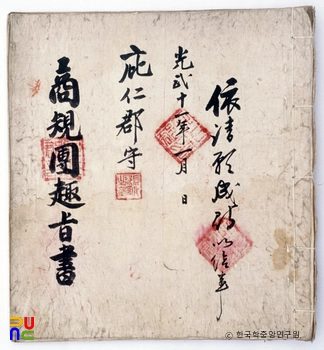 依請願成以事
光武十一年一月 日
庇仁郡守
商規團趣旨書
© 한국학중앙연구원